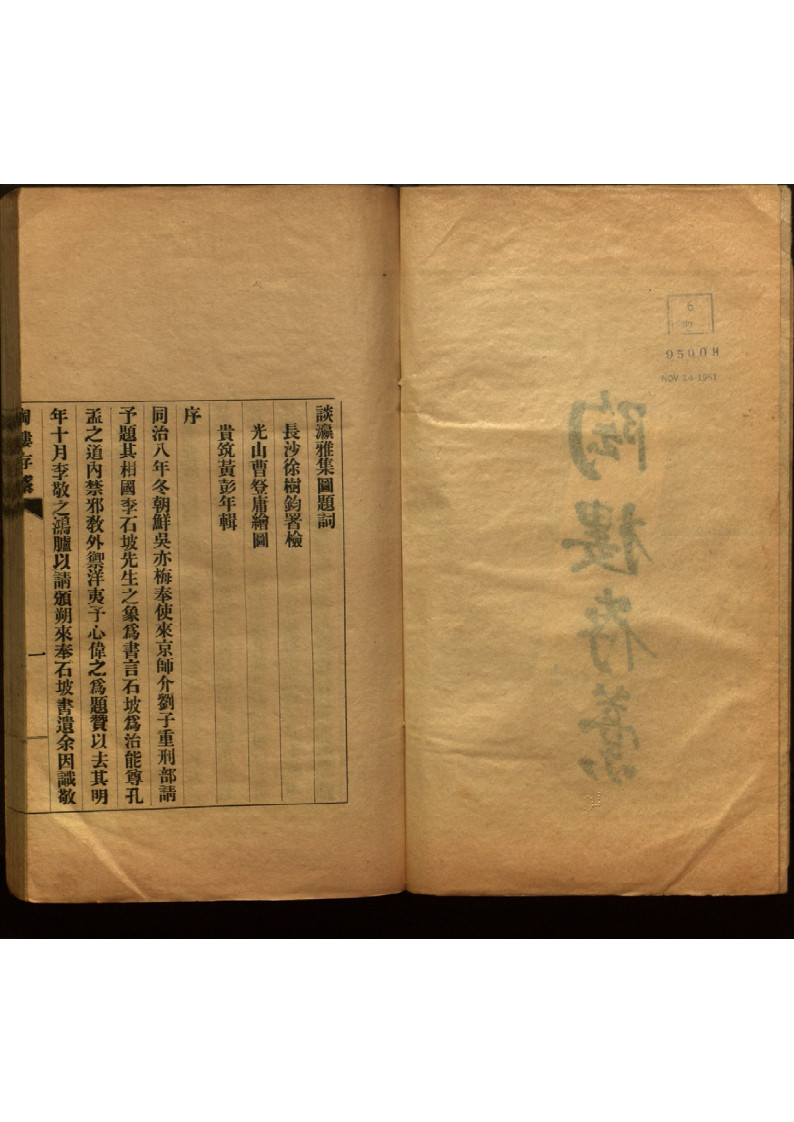 陶樓存藁
6
9500H
NOV 14 1961
談瀛雅集圖題詞
長沙徐樹鈞署檢
光山曹登庸繪圖
貴筑黃彭年輯
序
同治八年冬朝鮮吳亦梅奉使來京師介劉子重刑部請
予題其相國李石坡先生之象爲書言石坡爲治能尊孔
孟之道內禁邪敎外禦洋夷予心偉之爲題贊以去其明
年十月李敬之鴻臚以請頒朔來奉石坡書遺余因識敬
陶樓存藁
一